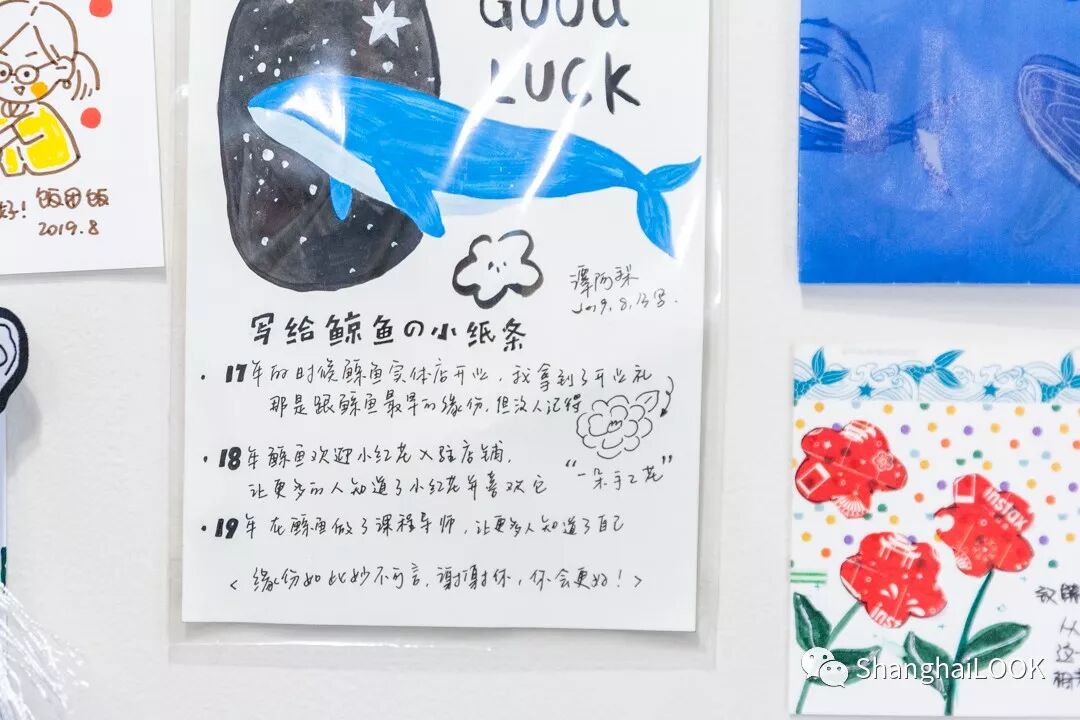 GOOD
LUCK
谭阿梨
2019.8.13写.
写给鲸鱼の小纸条
· 17年的时候鲸鱼实体店开业，我拿到了开业礼
那是跟鲸鱼最早的缘份，但没人记得
· 18年鲸鱼欢迎小红花入驻店铺，
让更多的人知道了小红花并喜欢它
“一朵手工花”
· 19年在鲸鱼做了课程导师，让更多人知道了自己
< 缘份如此妙不可言，谢谢你，你会更好！>
好! 饭团饭
2019.8
instax
inst
从
这
ShanghaiLOOK